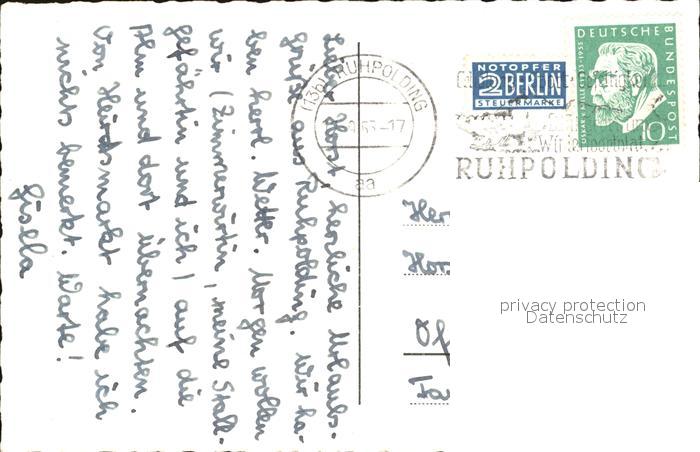 Lieber Horst, herzliche Urlaubs-
grüße aus Ruhpolding. Wir ha-
ben herrl. Wetter. Morgen wollen
wir (Zimmerwirtin, meine Stall-
gefährtin und ich) auf die
Alm und dort übernachten.
Von Heiratsmarkt habe ich
nichts bemerkt. Warte!
Gisella
(13b) RUHPOLDING
55-17
aa
NOTOPFER
2 BERLIN
STEUERMARKE
DEUTSCHE BUNDESPOST
OSKAR V. MILLER 1855-1955
10
RUHPOLDING
Her
Hor
privacy protection
Datenschutz